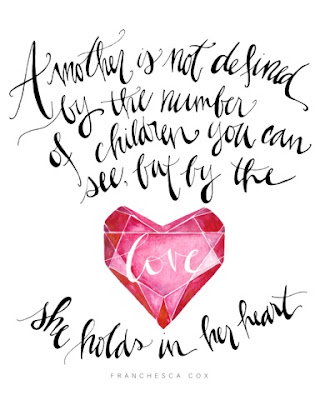 A mother is not defined
by the number
of children you can
see, but by the
love
she holds in her heart
FRANCHESCA COX